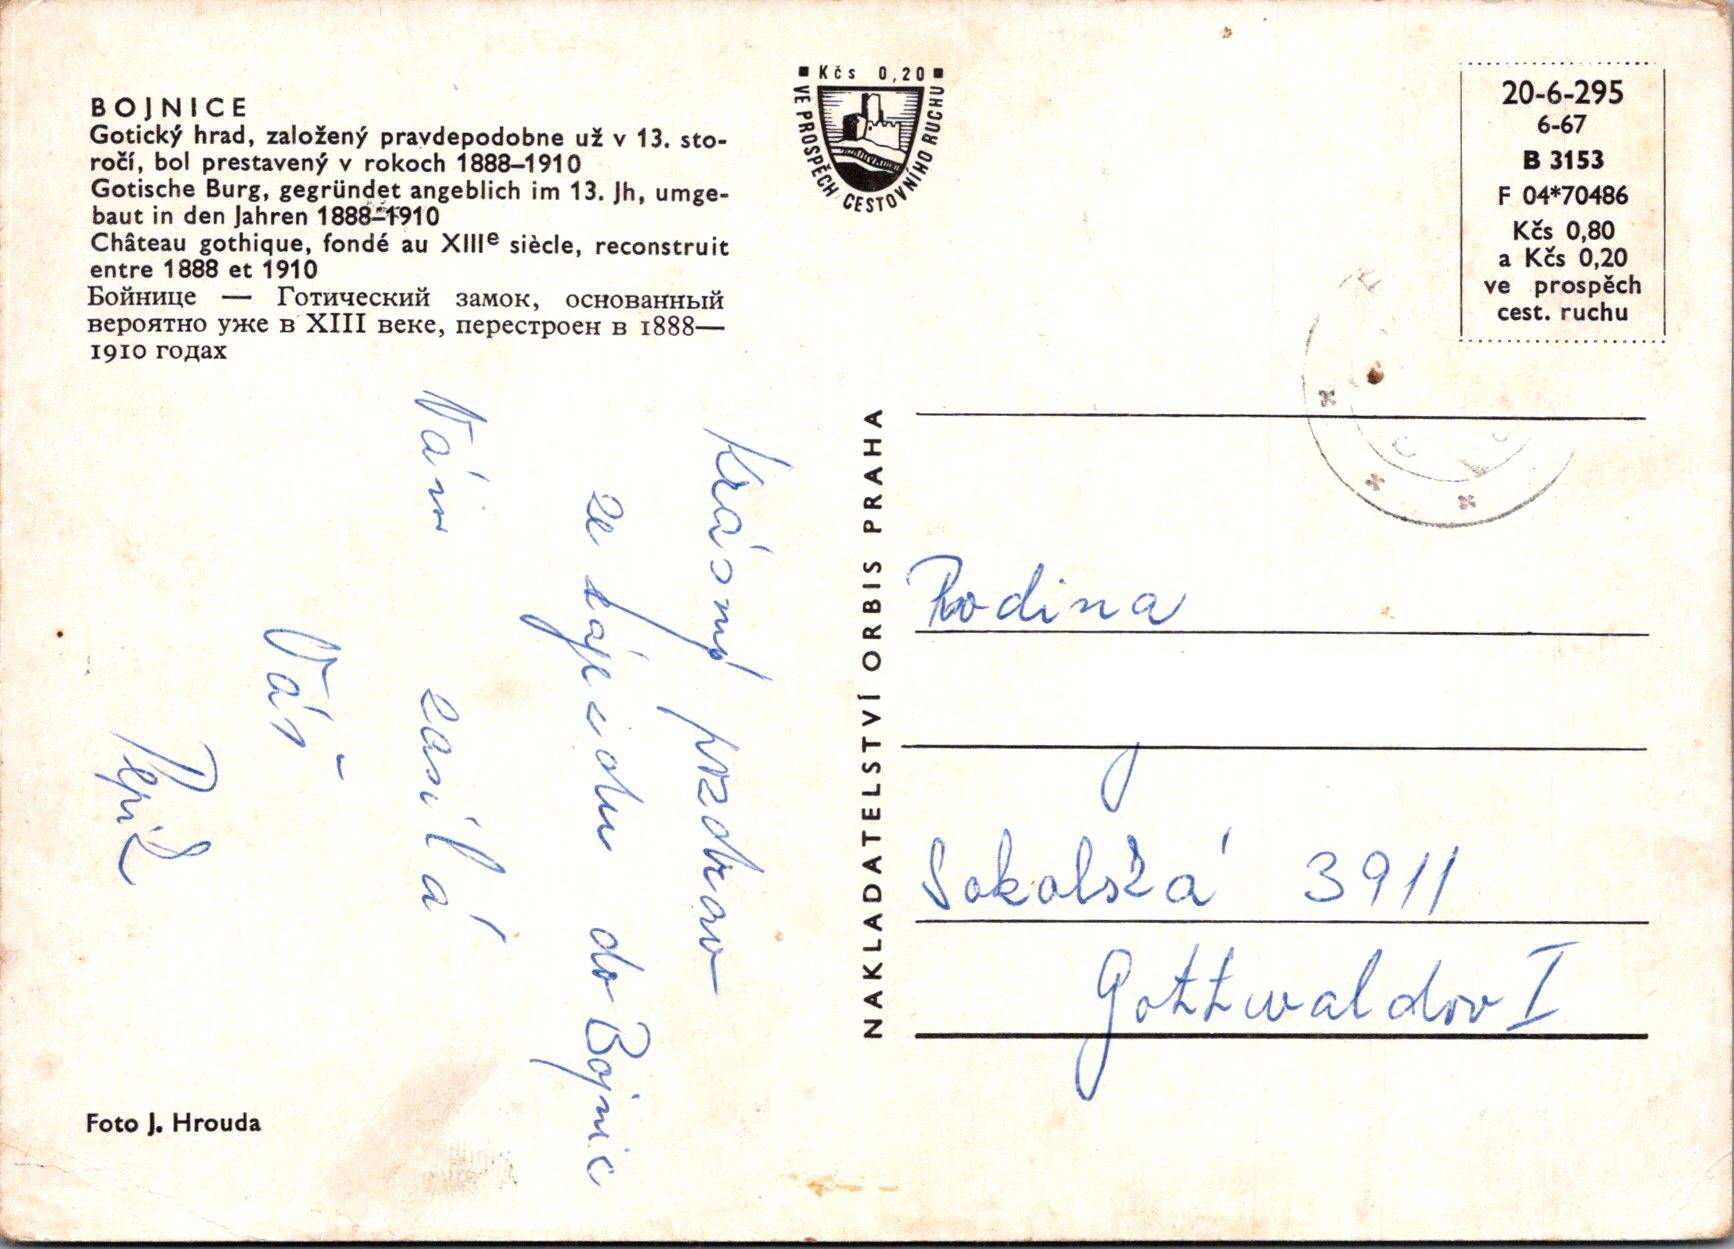 BOJNICE
Gotický hrad, založený pravdepodobne už v 13. sto-
ročí, bol prestavený v rokoch 1888–1910
Gotische Burg, gegründet angeblich im 13. Jh, umge-
baut in den Jahren 1888–1910
Château gothique, fondé au XIIIe siècle, reconstruit
entre 1888 et 1910
Бойнице — Готический замок, основанный
вероятно уже в XIII веке, перестроен в 1888—
1910 годах
Kčs 0,20
VE PROSPĚCH CESTOVNÍHO RUCHU
20-6-295
6-67
B 3153
F 04*70486
Kčs 0,80
a Kčs 0,20
ve prospěch
cest. ruchu
Krásný pozdrav
ze zájezdu do Bojnic
Vám zasílá
Váš
NAKLADATELSTVÍ ORBIS PRAHA
Rodina
Sokolská 3911
Gottwaldov I
Foto J. Hrouda